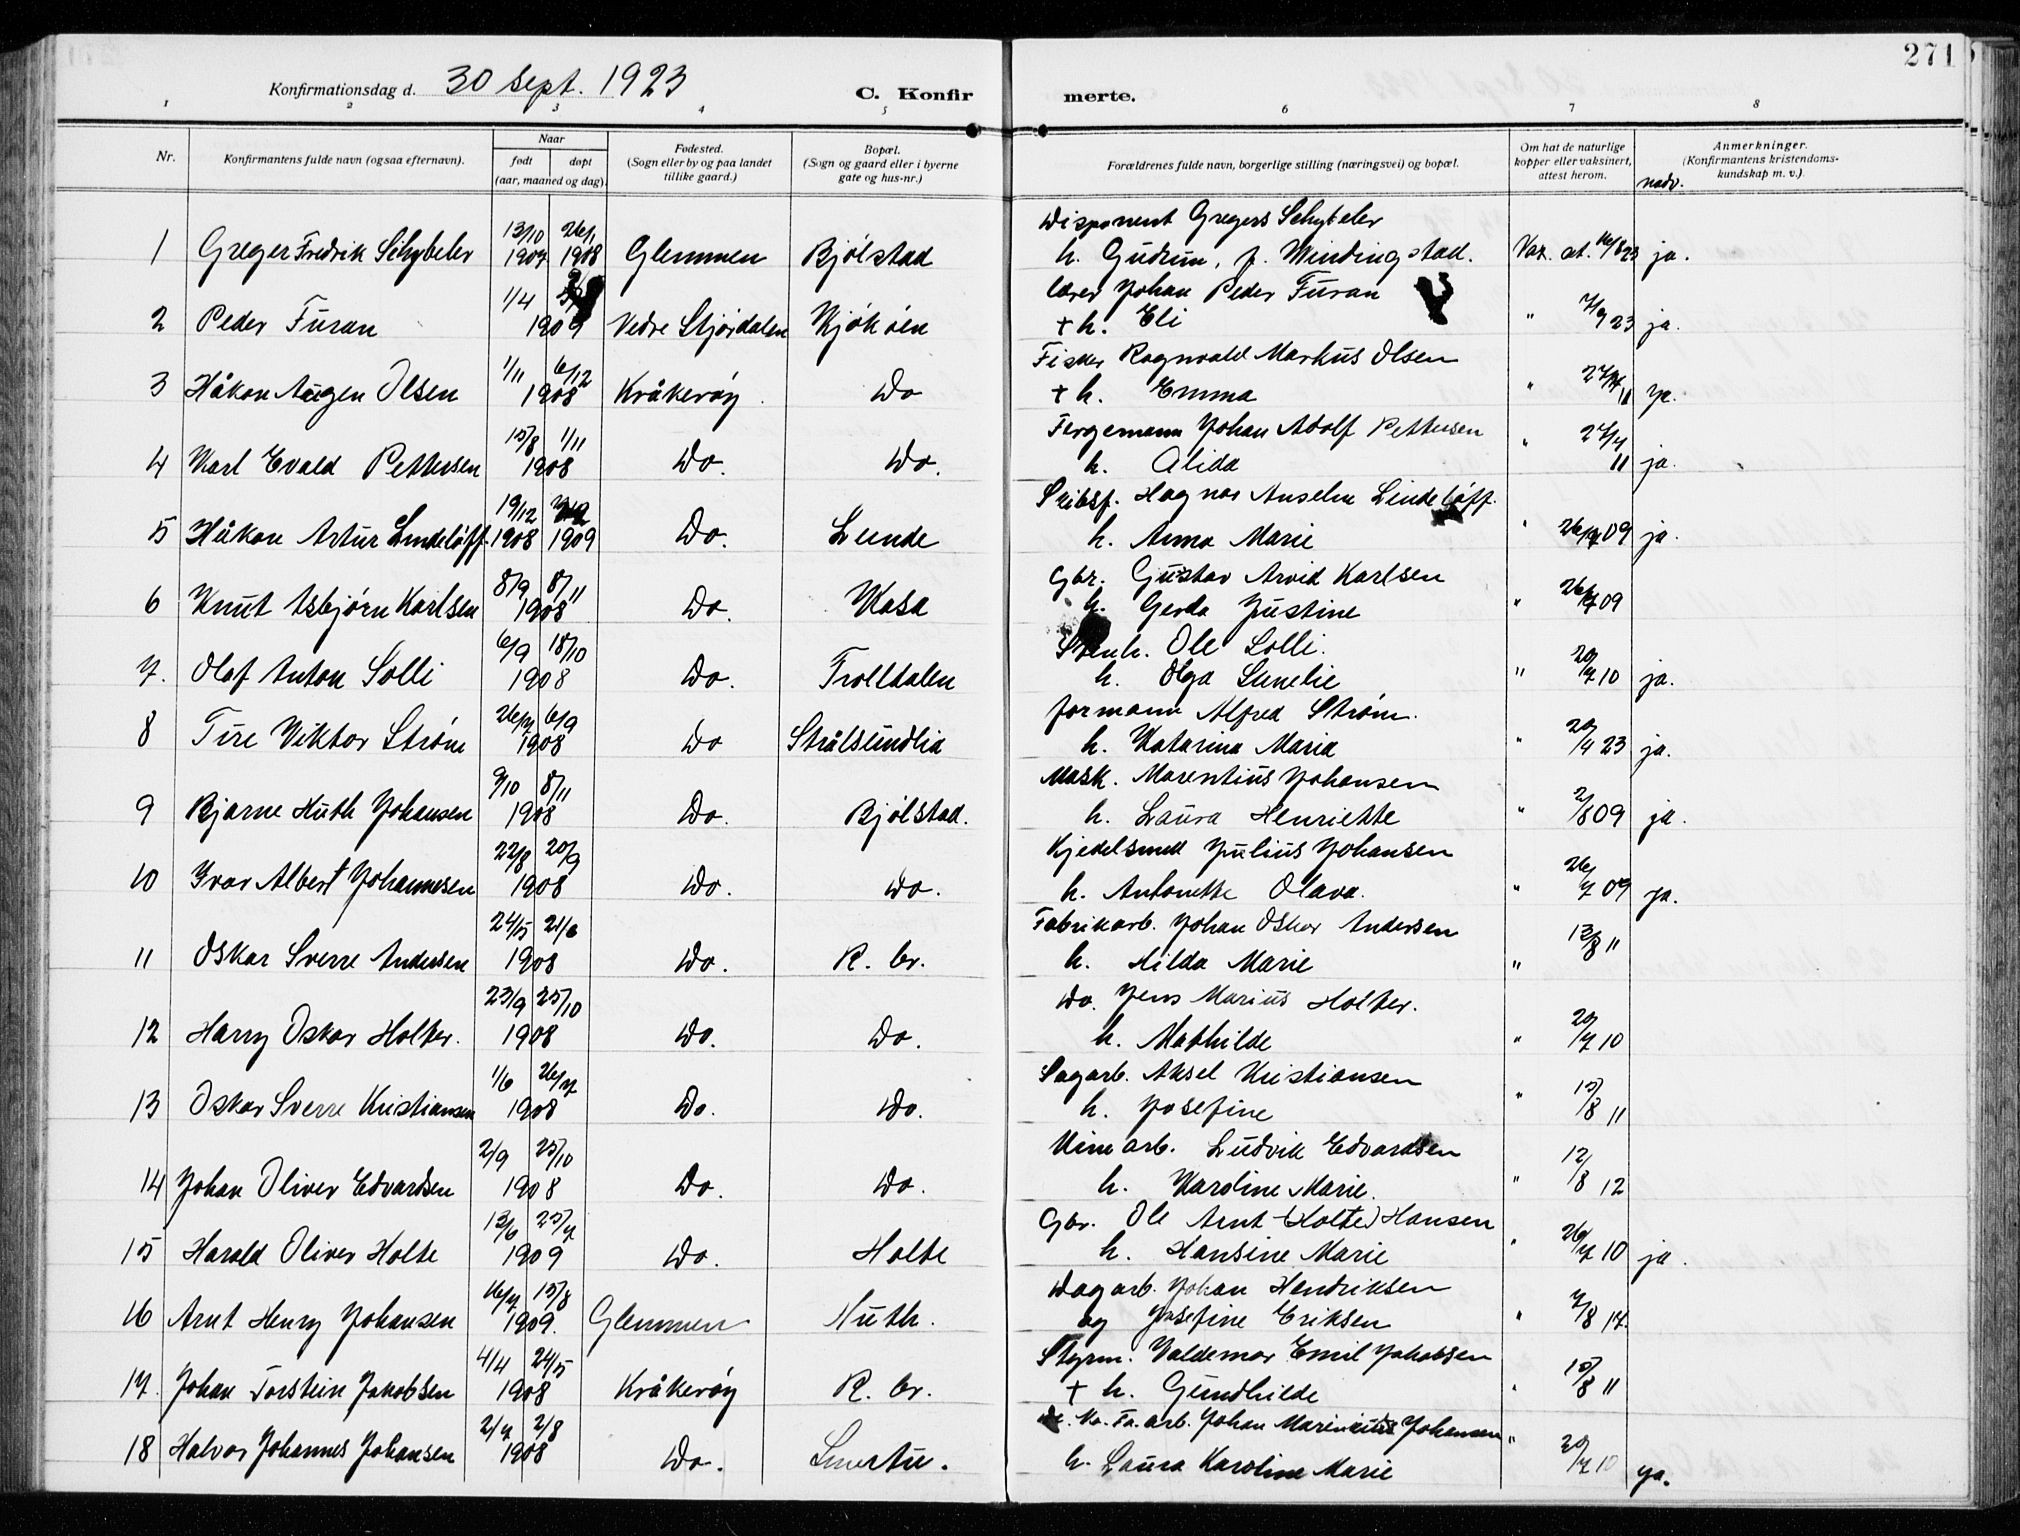 271
Konfirmationsdag d. 30 sept. 1923 C. Konfir merte.
1 2 3 4 5 6 7 8
Nr. Konfirmantens fulde navn (ogsaa efternavn). Naar født døpt (aar, maaned og dag) Fødested. (Sogn eller by og paa landet tillike gaard.) Bopæl. (Sogn og gaard eller i byerne gate og hus-nr.) Forældrenes fulde navn, borgerlige stilling (næringsvei) og bopæl. Om hat de naturlige kopper eller vaksinert, attest herom. Anmerkninger. (Konfirmantens kristendoms-kundskap m. v.)
nadv.
13/10 26/1 Disponent Gregers Schybeler
1 Greger Fredrik Schybeler 1907 1908 Glemmen Bjølstad h. Gudrun, f. Windingstad. Vax. at. 16/8 23 ja.
1/4 Lærer Johan Peder Furan
2 Peder Furan 1909 Nedre Stjørdalen Kjøkøen + h. Eli " 7/9 23 ja.
1/11 6/12 Fisker Ragnvald Markus Olsen
3 Håkon Augen Olsen 1908 Kråkerøy Do + h. Emma " 27/7 11 ja.
15/8 1/11 Fergemann Johan Adolf Pettersen
4 Karl Evald Pettersen 1908 Do. Do. h. Alida " 27/7 11 ja.
19/12 Skibsf. Hagnar Anselm Lindeløff.
5 Håkon Artur Lindeløff. 1908 1909 Do. Lunde h. Anna Marie " 26/7 09 ja.
8/9 8/11 Gbr. Gustav Arvid Karlsen
6 Knut Asbjørn Karlsen 1908 Do. Kasa h. Gerda Justine " 26/7 09
6/9 18/10 Stenh. Ole Solli.
7. Olaf Anton Solli 1908 Do. Trolldalen h. Olga Lunelie " 20/7 10 ja.
26/7 6/9 formann Alfred Strøm.
8 Ture Viktor Strøm 1908 Do Stålsundlia h. Katarina Maria " 20/4 23 ja.
9/10 8/11 Mask. Marentius Johansen
9 Bjarne Huth Johansen 1908 Do. Bjølstad. h. Laura Henriette " 2/8 09 ja.
22/8 20/9 Kjedelsmed Julius Johansen
10 Ivar Albert Johannesen 1908 Do. Do. h. Antonette Olava. " 26/7 09 ja.
24/5 21/6 Fabrikarb. Johan Oskar Andersen
11 Oskar Sverre Andersen 1908 Do. R. br. h. Hilda Marie " 13/8 11
23/9 25/10 Do. Jens Marius Holter.
12 Harry Oskar Holter. 1908 Do. Do. h. Mathilde " 20/7 10
1/6 26/7 Sagarb. Aksel Kristiansen
13 Oskar Sverre Kristiansen 1908 Do. Do. h. Josefine " 15/8 11
2/9 25/10 Minearb. Ludvik Edvardsen
14 Johan Oliver Edvardsen 1908 Do. Do. h. Karoline Marie. " 12/8 12
13/6 25/7 Gbr. Ole Arnt (Holte) Hansen
15 Harald Oliver Holte 1909 Do. Holte h. Hansine Marie " 26/7 10 ja.
16/7 15/8 Dagarb. Johan Hendriksen
16 Arnt Henry Johansen 1909. Glemmen Huth. og Josefine Eriksen " 7/8 17.
4/4 24/5 Styrm. Valdemar Emil Jakobsen
17. Johan Torstein Jakobsen 1908 Kråkerøy R. br. + h. Gundhilde " 15/8 11
2/7 2/8 Fa. arb. Johan Marinius Johansen
18 Halvor Johannes Johansen 1908 Do. Smertu. h. Laura Karoline Marie " 20/7 10 ja.